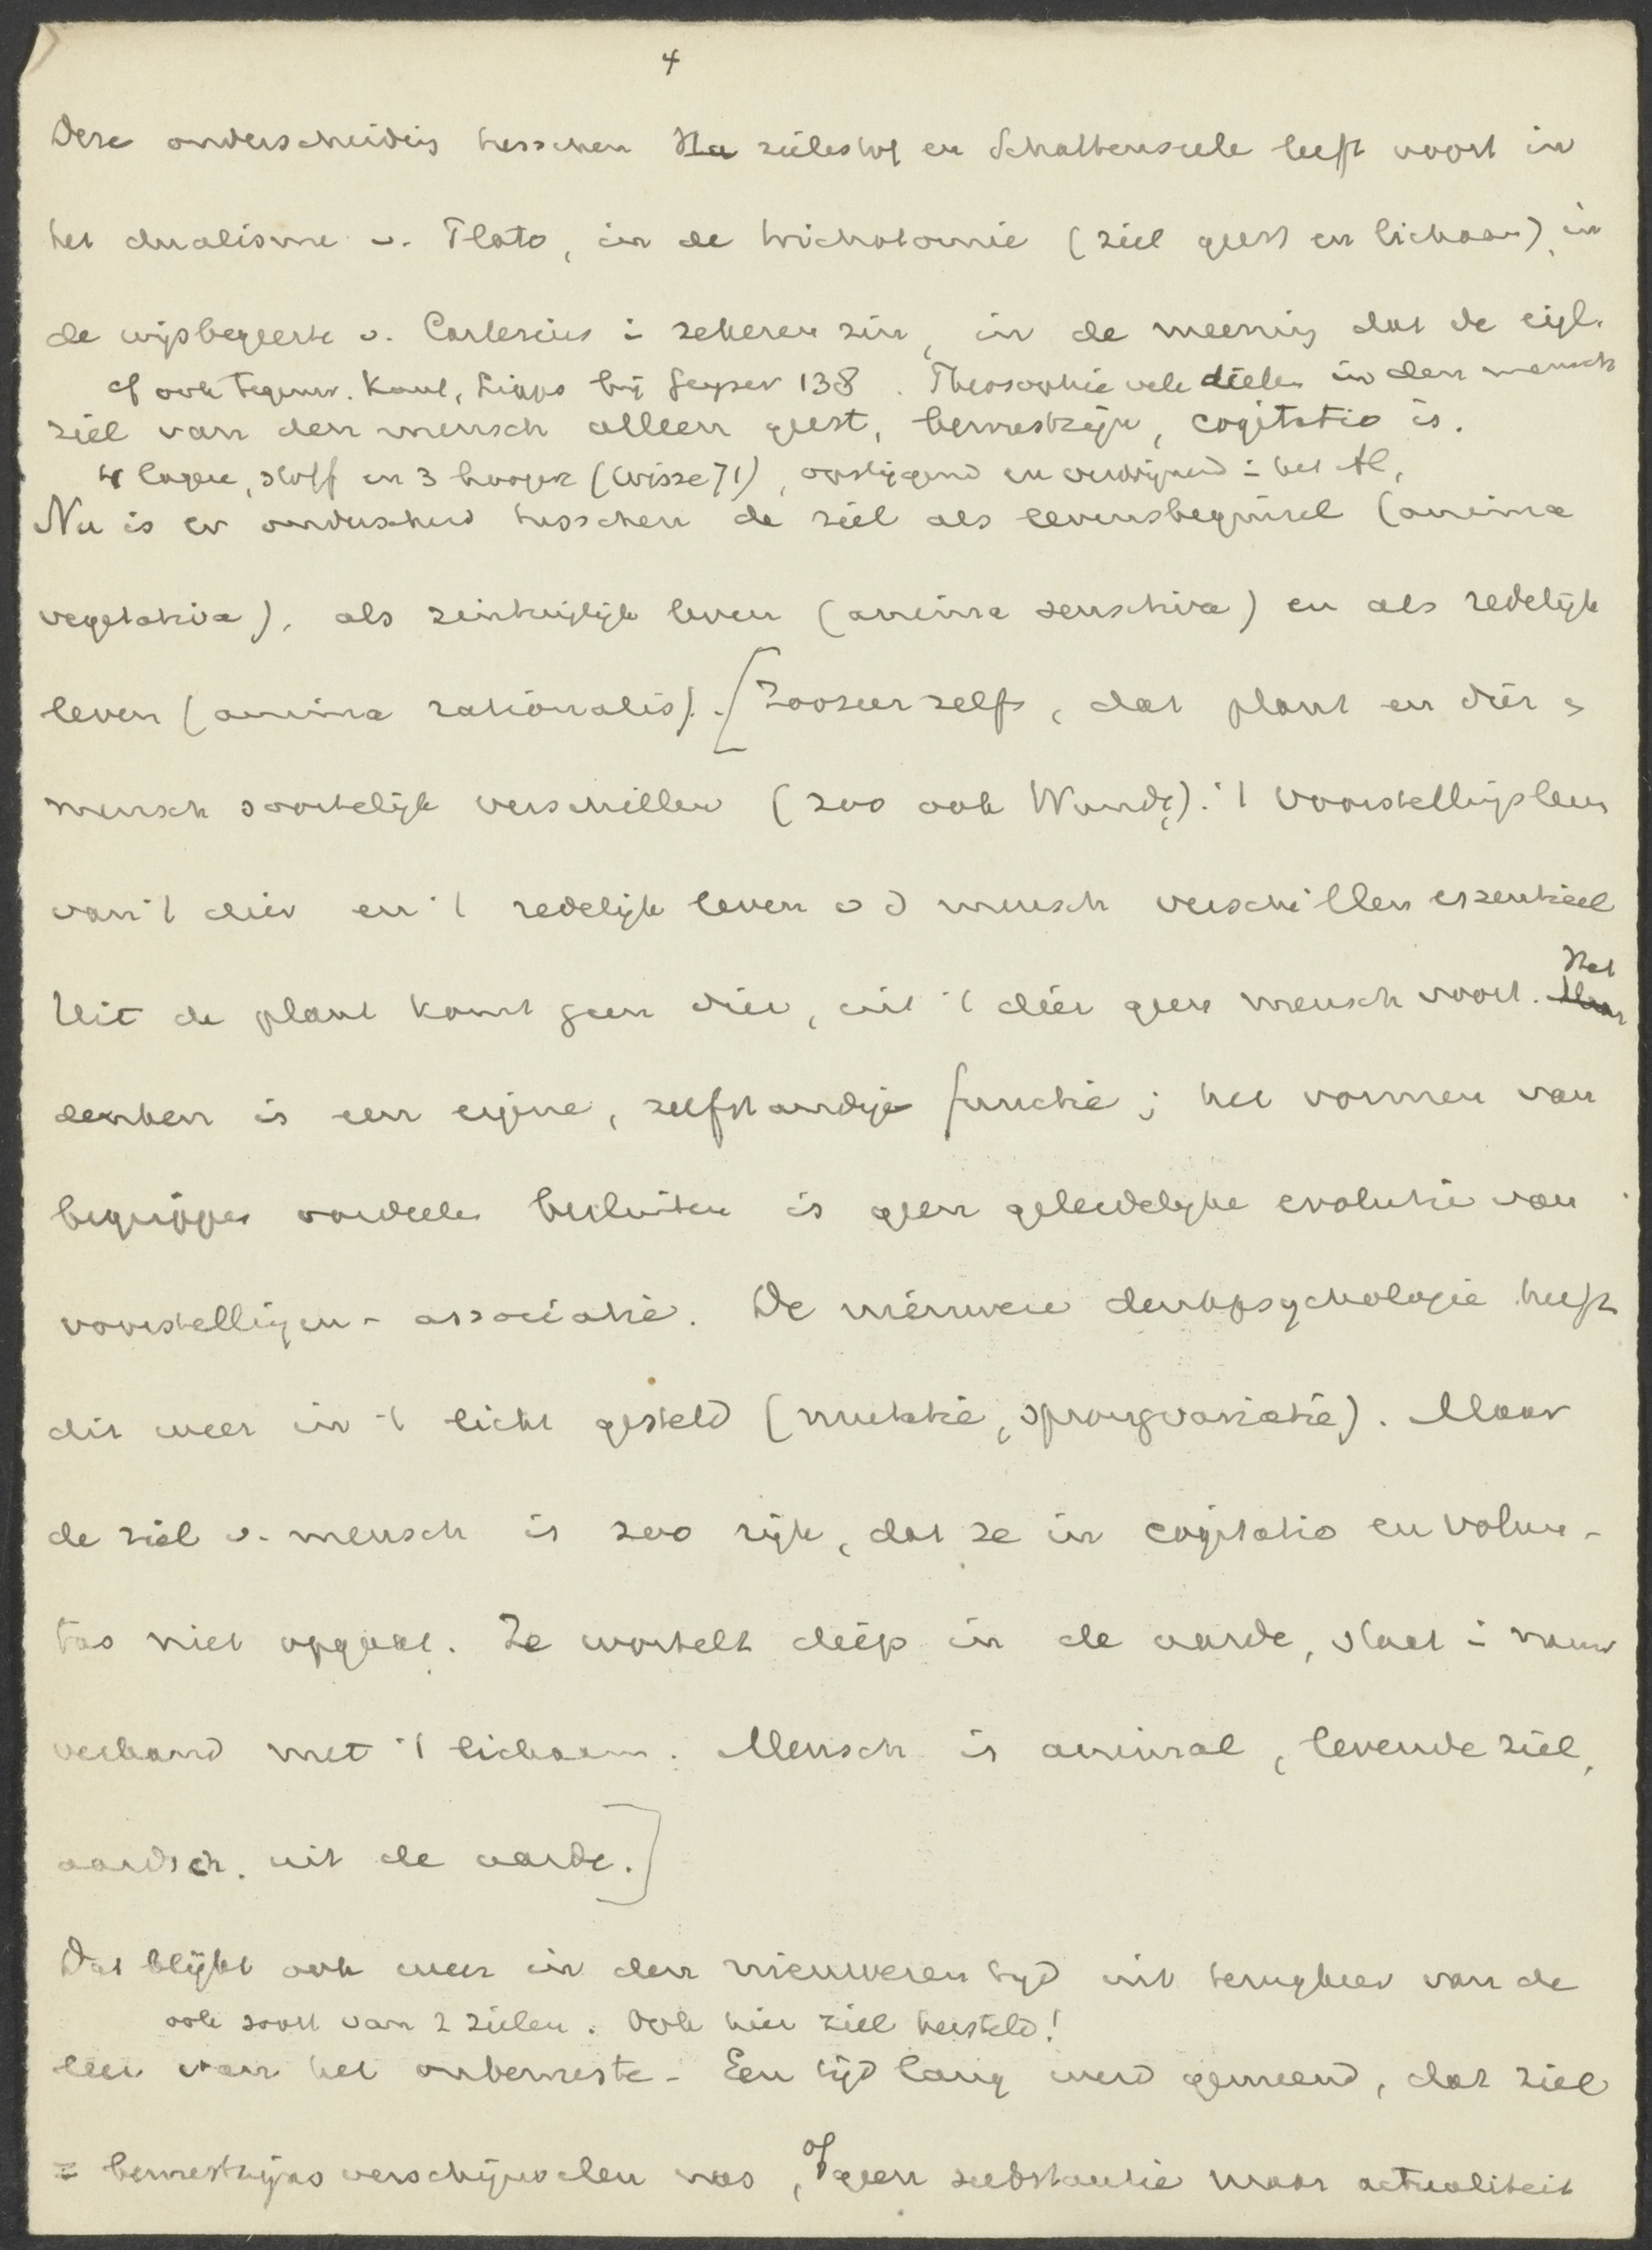 4
Deze onderscheiding tusschen zielestof en Schattenseele leeft voort in
het dualisme v. Plato, in de trichotomie (ziel geest en lichaam), in
de wijsbegeerte v. Cartesius i zekeren zin, in de meening dat de eigl.
cf ook tegenw. Kant, Lipps bij Geyser 138. Theosophie vele deelen in den mensch
ziel van den mensch alleen geest, bewustzijn, cogitatio is.
4 lagere, stoff en 3 hoogere (Wisse 71), opstijgend en verdwijnend i het Al,
Nu is er onderscheid tusschen de ziel als levensbeginsel (anima
vegetativa), als zintuiglijk leven (anima sensitiva) en als redelijk
leven (anima rationalis). [Zoozeer zelfs, dat plant en dier en
mensch soortelijk verschillen (zoo ook Wundt). 't Voorstellingsleven
van 't dier en 't redelijk leven v d mensch verschillen essentieel
Uit de plant komt geen dier, uit 't dier geen mensch voort. Het
denken is een eigene, zelfstandige functie; het vormen van
begrippen oordeelen besluiten is geen geleidelijke evolutie van
voorstellingen-associatie. De nieuwere denkpsychologie heeft
dit weer in 't licht gesteld (mutatie, sprongvariatie). Maar
de ziel v. mensch is zoo rijk, dat ze in cogitatio en volun-
tas niet opgaat. Ze wortelt diep in de aarde, staat i nauw
verband met 't lichaam. Mensch is animal, levende ziel,
aardsch, uit de aarde.]
Dat blijkt ook weer in den nieuweren tijd uit terugkeer van de
ook soort van 2 zielen. Ook hier ziel hersteld!
leer van het onbewuste - Een tijd lang werd gemeend, dat ziel
= bewustzijnsverschijnselen was, of geen substantie maar actualiteit